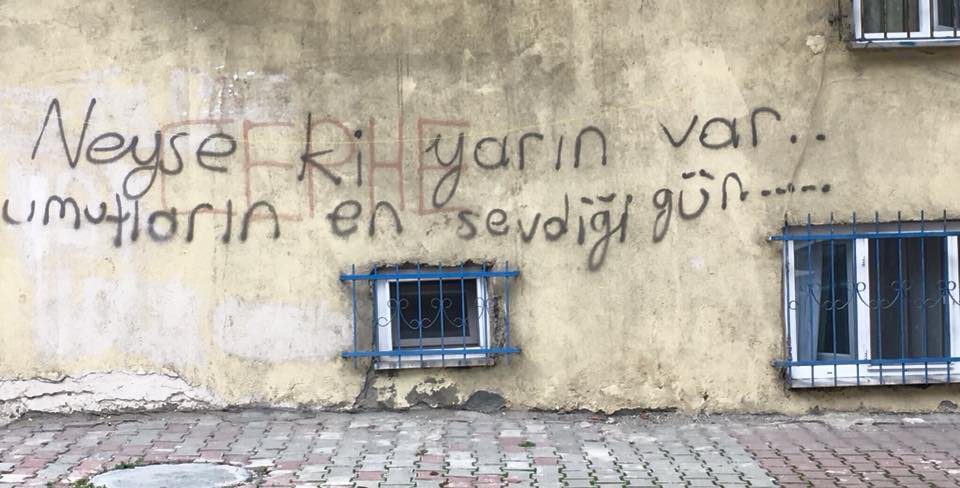 Neyse ki yarın var..
umutların en sevdiği gün.....
CEPHE